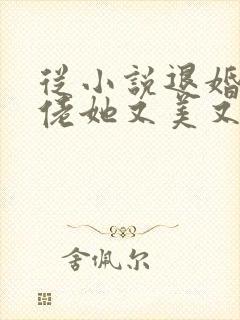 从小説退婚
佬她又美又
舍佩尔